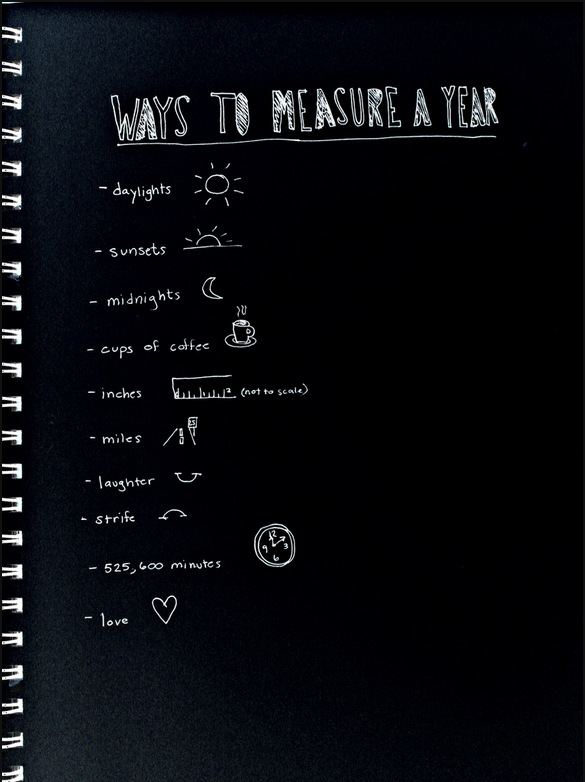 WAYS TO MEASURE A YEAR
- daylights
- sunsets
- midnights
- cups of coffee
- inches 2 (not to scale)
- miles 25
- laughter
- strife
12
9 3
6
- 525,600 minutes
- love